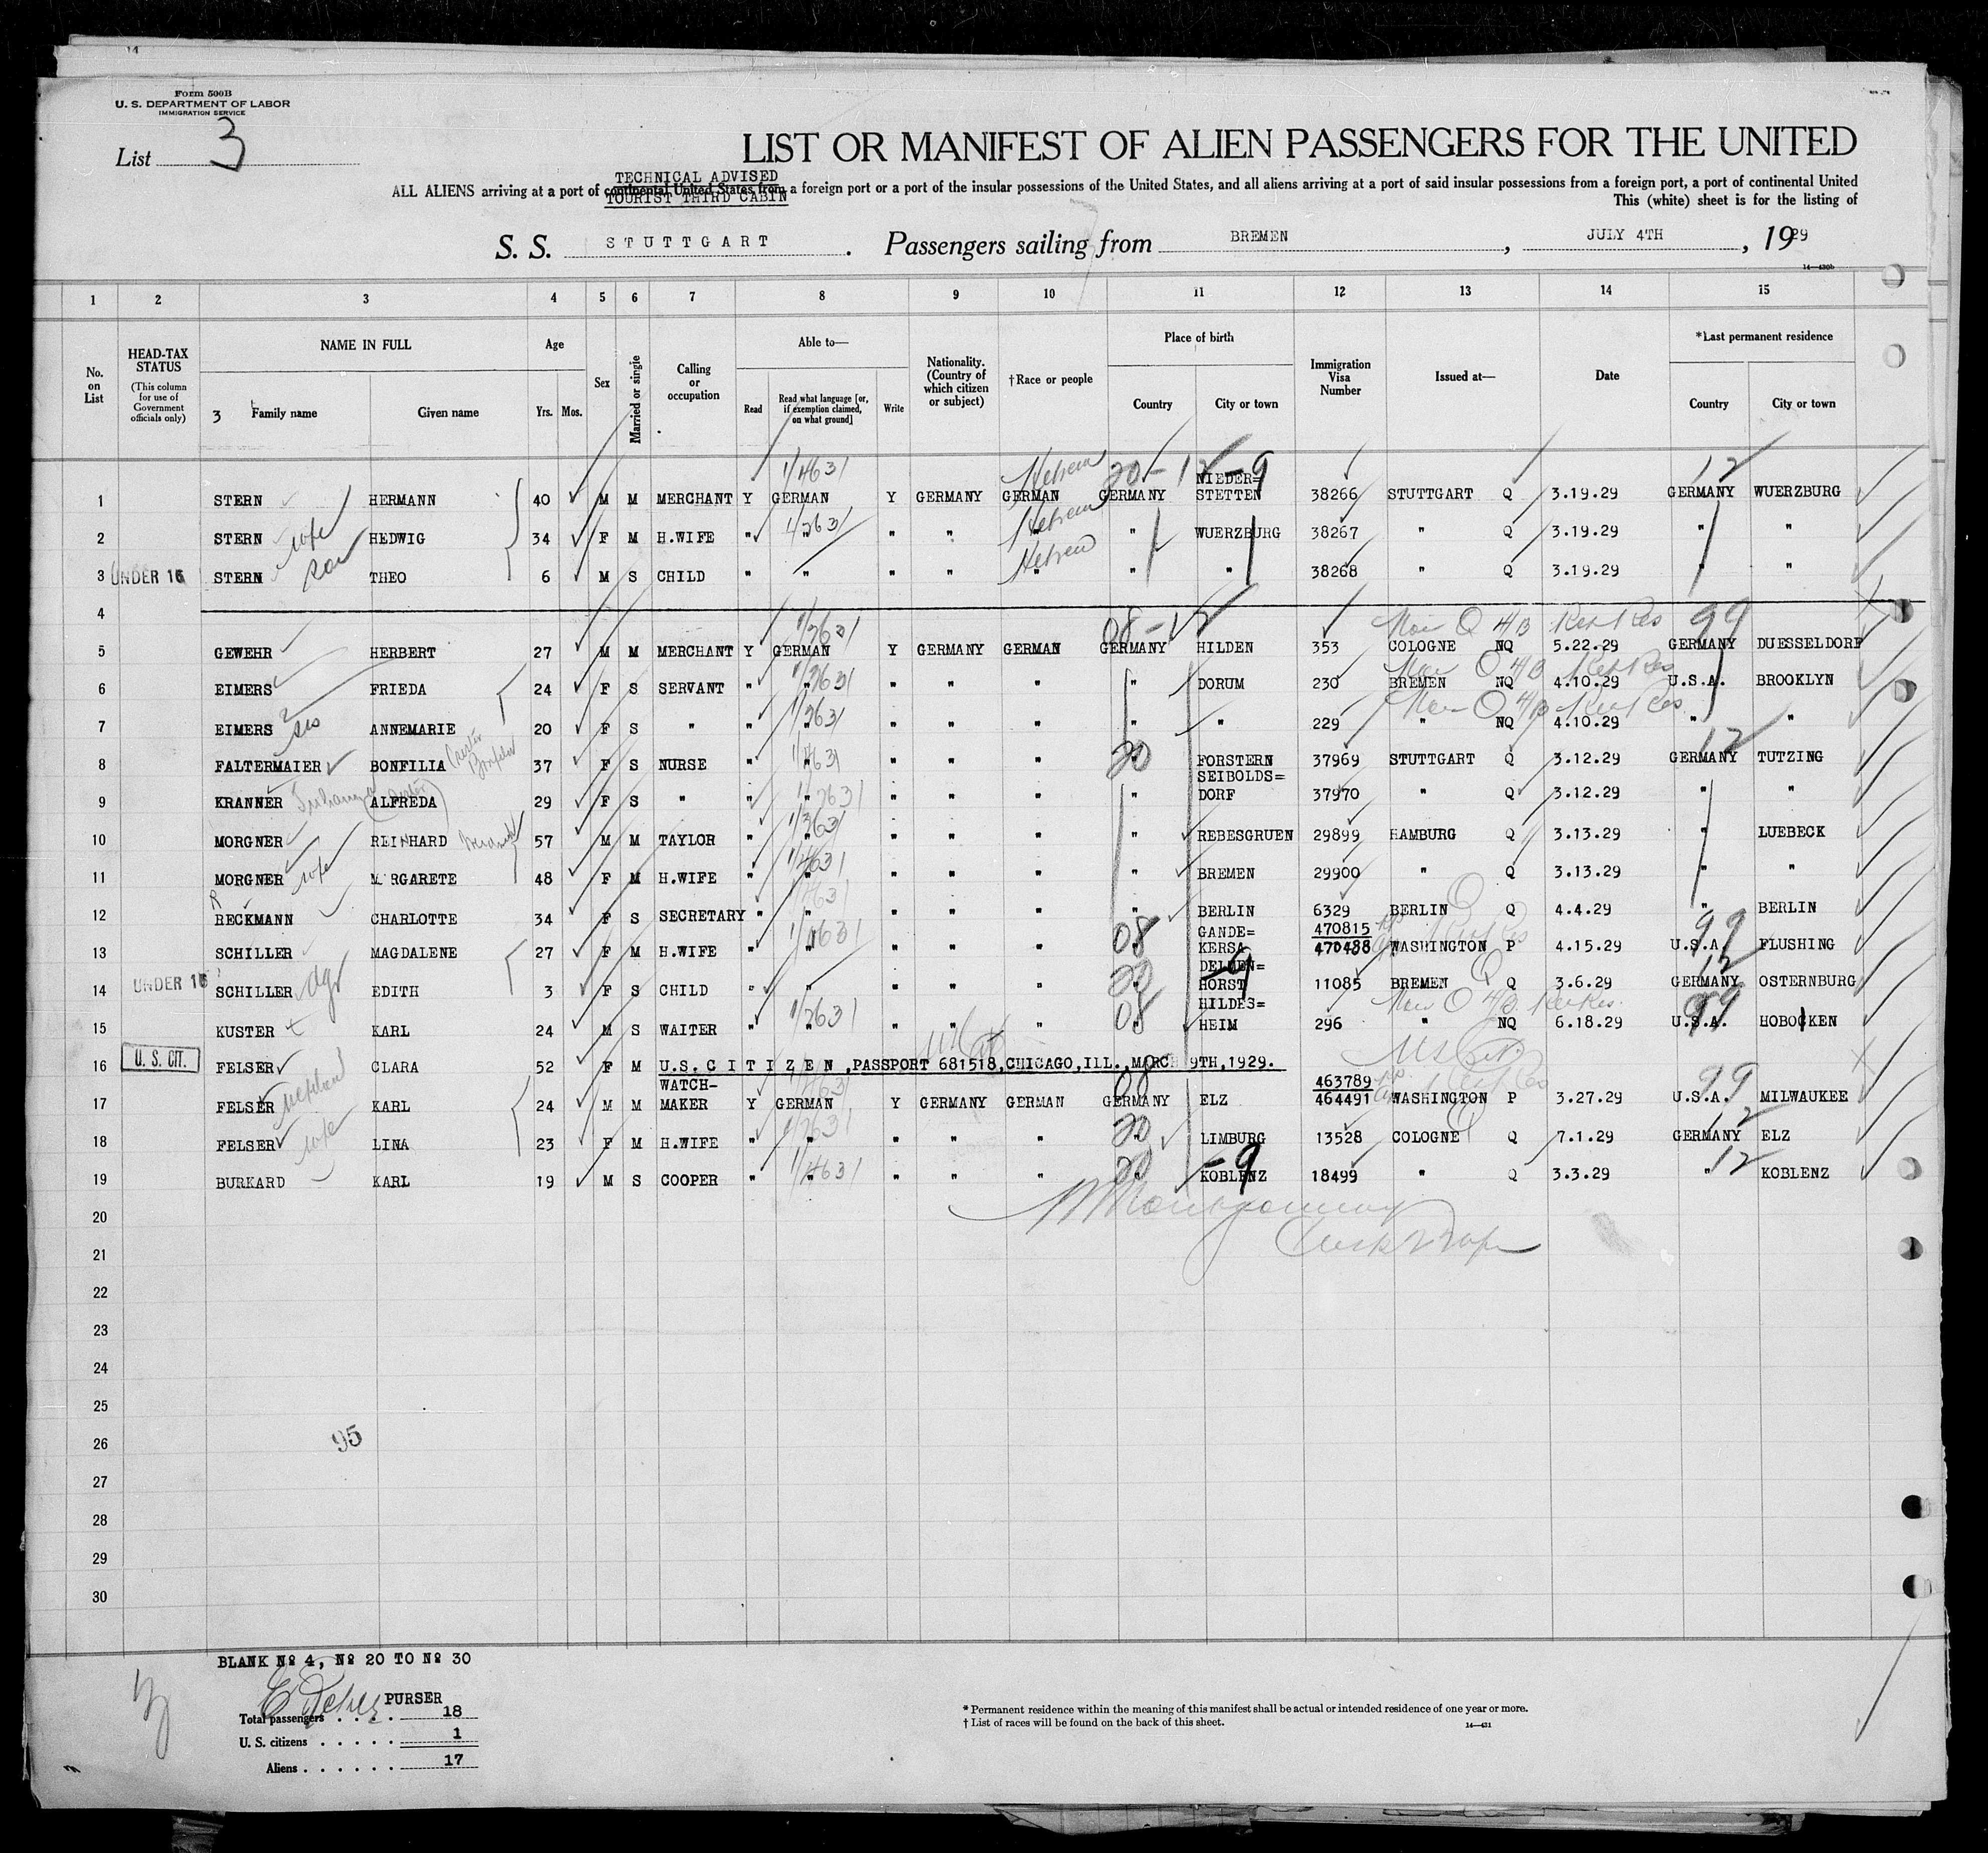 Form 500B
U. S. DEPARTMENT OF LABOR
IMMIGRATION SERVICE
List 3
LIST OR MANIFEST OF ALIEN PASSENGERS FOR THE UNITED
TECHNICAL ADVISED
ALL ALIENS arriving at a port of continental United States from a foreign port or a port of the insular possessions of the United States, and all aliens arriving at a port of said insular possessions from a foreign port, a port of continental United
TOURIST THIRD CABIN
This (white) sheet is for the listing of
S. S. STUTTGART. Passengers sailing from BREMEN, JULY 4TH, 1929
14—430b
1 2 3 4 5 6 7 8 9 10 11 12 13 14 15
No. on List
HEAD-TAX STATUS
(This column for use of Government officials only)
NAME IN FULL
3 Family name Given name
Age
Yrs. Mos.
Sex
Married or single
Calling or occupation
Able to—
Read
Read what language [or, if exemption claimed, on what ground]
Write
Nationality. (Country of which citizen or subject)
†Race or people
Place of birth
Country City or town
Immigration Visa Number
Issued at—
Date
*Last permanent residence
Country City or town
1/4631 Hebrew 20-12-9 12
1 STERN HERMANN 40 M M MERCHANT Y GERMAN Y GERMANY GERMAN GERMANY NIEDER=STETTEN 38266 STUTTGART Q 3.19.29 GERMANY WUERZBURG
2 STERN wife HEDWIG 34 F M H.WIFE " " 1/2631 " " " Hebrew " WUERZBURG 38267 " Q 3.19.29 " "
3 UNDER 16 STERN son THEO 6 M S CHILD " " " " " Hebrew " " 38268 " Q 3.19.29 " "
4
1/2631 08-12 Non Q 4/B Ret Res 99
5 GEWEHR HERBERT 27 M M MERCHANT Y GERMAN Y GERMANY GERMAN GERMANY HILDEN 353 COLOGNE NQ 5.22.29 GERMANY DUESSELDORF
1/2631 Non Q 4/B Ret Res
6 EIMERS FRIEDA 24 F S SERVANT " " " " " " DORUM 230 BREMEN NQ 4.10.29 U.S.A. BROOKLYN
1/2631 Non Q 4/B Ret Res
7 EIMERS sis ANNEMARIE 20 F S " " " " " " " " 229 " NQ 4.10.29 " "
1/4631 20 12
8 FALTERMAIER BONFILIA 37 F S NURSE " " " " " " FORSTERN 37969 STUTTGART Q 3.12.29 GERMANY TUTZING
9 KRANNER ALFREDA 29 F S " " " 1/2631 " " " " SEIBOLDS=DORF 37970 " Q 3.12.29 " "
10 MORGNER REINHARD 57 M M TAYLOR " " " " " " REBESGRUEN 29899 HAMBURG Q 3.13.29 " LUEBECK
1/4631
11 MORGNER wife MARGARETE 48 F M H.WIFE " " " " " " BREMEN 29900 " Q 3.13.29 " "
12 BECKMANN R CHARLOTTE 34 F S SECRETARY " " " " " " BERLIN 6329 BERLIN Q 4.4.29 " BERLIN
1/4631 08 470815 99
13 SCHILLER MAGDALENE 27 F M H.WIFE " " " " " " GANDE=KERSA 470488 WASHINGTON P 4.15.29 U.S.A. FLUSHING
20 -9 12
14 UNDER 16 SCHILLER dgr EDITH 3 F S CHILD " " " " " " DELMEN=HORST 11085 BREMEN Q 3.6.29 GERMANY OSTERNBURG
1/2631 08 Non Q 4/B Ret Res. 99
15 KUSTER KARL 24 M S WAITER " " " " " " HILDES=HEIM 296 " NQ 6.18.29 U.S.A. HOBOCKEN
16 U. S. CIT. FELSER CLARA 52 F M U.S. CITIZEN, PASSPORT 681518, CHICAGO, ILL., MARCH 9TH, 1929. US Cit.
08 463789 99
17 FELSER nephew KARL 24 M M WATCH-MAKER Y GERMAN Y GERMANY GERMAN GERMANY ELZ 464491 WASHINGTON P 3.27.29 U.S.A. MILWAUKEE
1/2631 20 12
18 FELSER wife LINA 23 F M H.WIFE " " " " " " LIMBURG 13528 COLOGNE Q 7.1.29 GERMANY ELZ
1/4631 20 -9 12
19 BURKARD KARL 19 M S COOPER " " " " " " KOBLENZ 18499 " Q 3.3.29 " KOBLENZ
20
21
22
23
24
25
26 95
27
28
29
30
BLANK Nº 4, Nº 20 TO Nº 30
PURSER
Total passengers 18
U. S. citizens 1
Aliens 17
* Permanent residence within the meaning of this manifest shall be actual or intended residence of one year or more.
† List of races will be found on the back of this sheet.
14—431